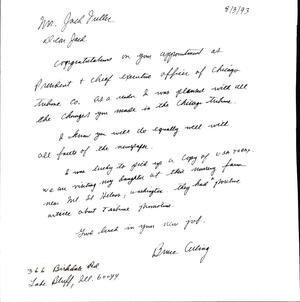 8/3/93
Mr. Jack Fuller
Dear Jack
Congratulations on your appointment as
President & chief executive officer of Chicago
Tribune Co. As a reader I was pleased with all
the changes you made in the Chicago Tribune.
I know you will do equally well with
all facets of the newspaper.
I was lucky to pick up a copy of USA Today.
We are visiting my daughter at this nursing farm
near Mt. St Helens, Washington they had positive
article about Tribune
Good luck in your new job.
Bruce
366 Birkdale Rd
Lake Bluff, Ill. 60044